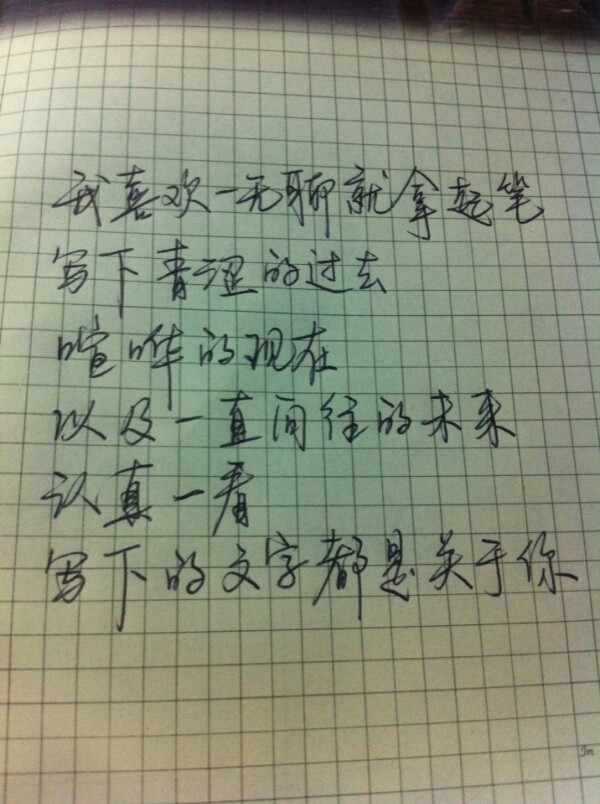 我喜欢一无聊就拿起笔
写下青涩的过去
喧哗的现在
以及一直向往的未来
认真一看
写下的文字都是关于你
In